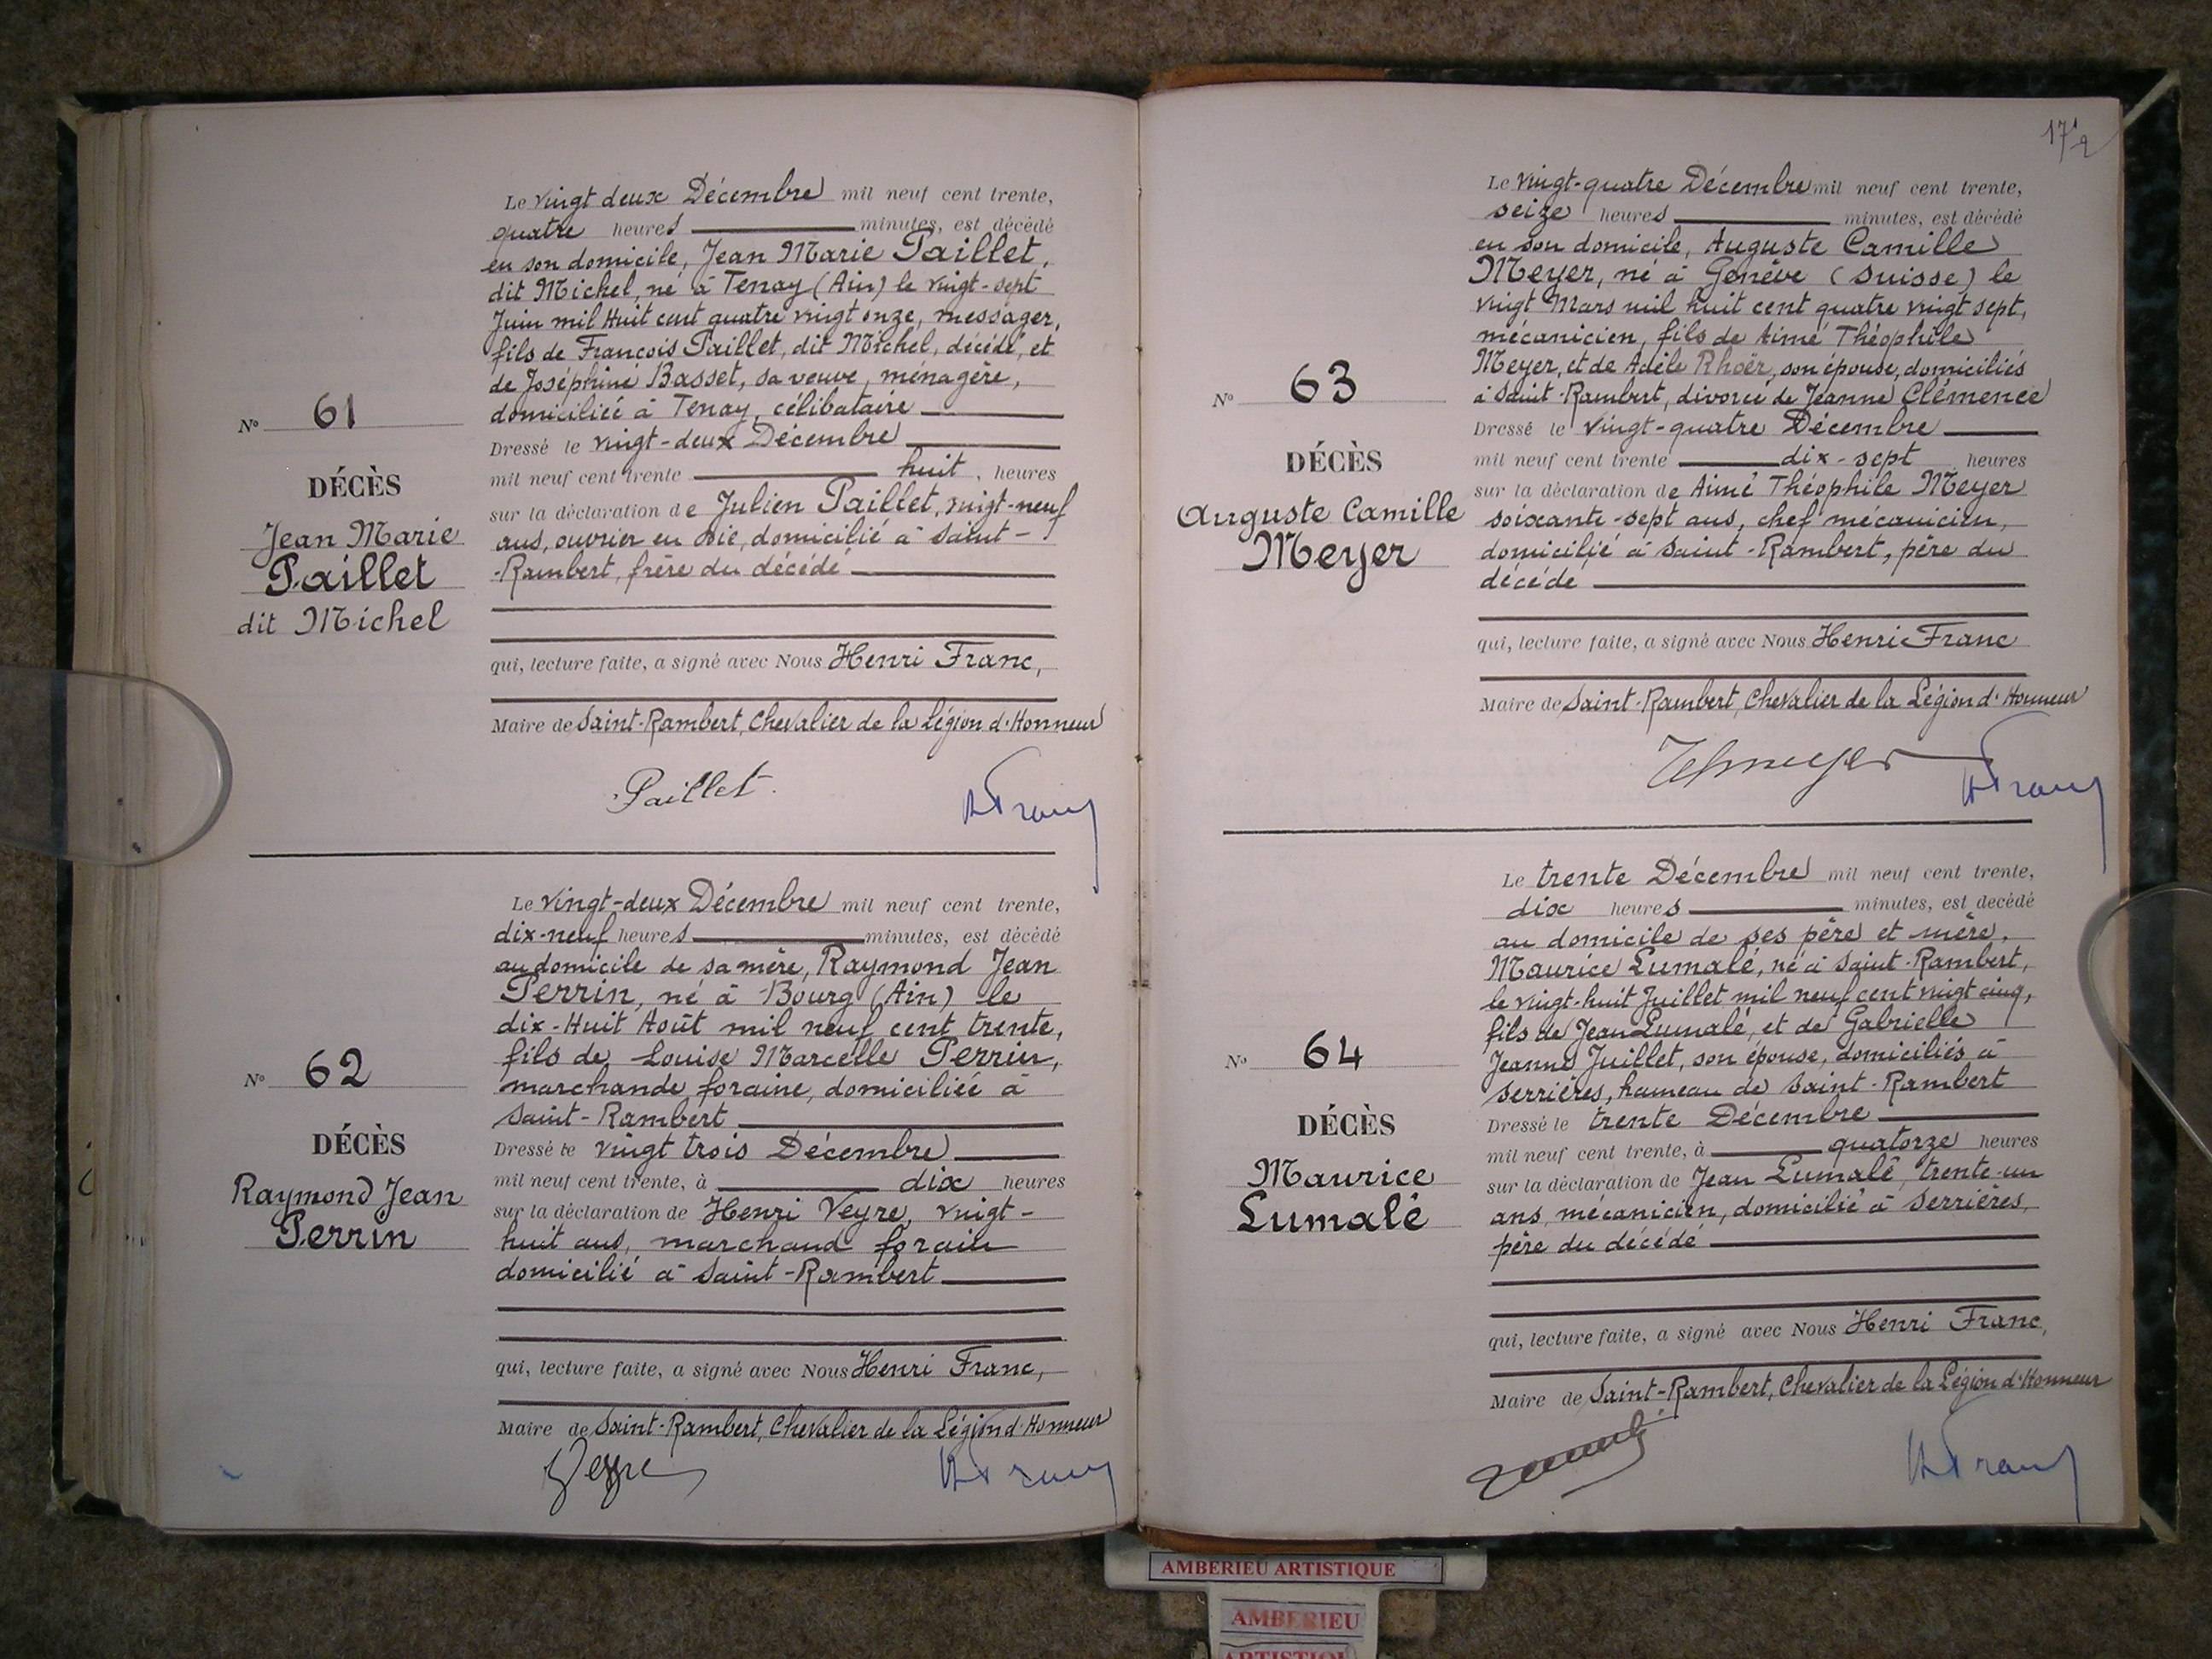 Le vingt deux Décembre mil neuf cent trente,
quatre heures minutes, est décédé
en son domicile, Jean Marie Paillet,
dit Michel, né à Tenay (Ain) le vingt-sept
Juin mil Huit cent quatre vingt onze, messager,
fils de François Paillet, dit Michel, décédé, et
de Joséphine Basset, sa veuve, ménagère,
domiciliée à Tenay, célibataire
Dressé le vingt-deux Décembre
mil neuf cent trente huit, heures
sur la déclaration de Julien Paillet, vingt-neuf
ans, ouvrier en soie, domicilié à Saint-
-Rambert, frère du décédé
qui, lecture faite, a signé avec Nous Henri Franc,
Maire de Saint-Rambert, Chevalier de la Légion d'Honneur
Paillet
HFranc
N° 61
DÉCÈS
Jean Marie
Paillet
dit Michel
Le vingt-deux Décembre mil neuf cent trente,
dix-neuf heures minutes, est décédé
au domicile de sa mère, Raymond Jean
Perrin, né à Bourg (Ain) le
dix-Huit Août mil neuf cent trente,
fils de Louise Marcelle Perrin,
marchande foraine, domiciliée à
Saint-Rambert
Dressé le vingt trois Décembre
mil neuf cent trente, à dix heures
sur la déclaration de Henri Veyre, vingt-
huit ans, marchand forain
domicilié à Saint-Rambert
qui, lecture faite, a signé avec Nous Henri Franc,
Maire de Saint-Rambert, Chevalier de la Légion d'Honneur
Veyre
HFranc
N° 62
DÉCÈS
Raymond Jean
Perrin
172
Le vingt-quatre Décembre mil neuf cent trente,
seize heures minutes, est décédé
en son domicile, Auguste Camille
Meyer, né à Genève (Suisse) le
vingt Mars mil huit cent quatre vingt sept,
mécanicien, fils de Aimé Théophile
Meyer, et de Adèle Rhoër, son épouse, domiciliés
à Saint-Rambert, divorcé de Jeanne Clémence
Dressé le vingt-quatre Décembre
mil neuf cent trente dix-sept heures
sur la déclaration de Aimé Théophile Meyer
soixante-sept ans, chef mécanicien,
domicilié à Saint-Rambert, père du
décédé
qui, lecture faite, a signé avec Nous Henri Franc
Maire de Saint-Rambert, Chevalier de la Légion d'Honneur
HFranc
N° 63
DÉCÈS
Auguste Camille
Meyer
Le trente Décembre mil neuf cent trente,
dix heures minutes, est decédé
au domicile de ses père et mère,
Maurice Lumalé, né à Saint-Rambert,
le vingt-huit Juillet mil neuf cent vingt cinq,
fils de Jean Lumalé, et de Gabrielle
Jeanne Juillet, son épouse, domiciliés à
Serrières, hameau de Saint-Rambert
Dressé le trente Décembre
mil neuf cent trente, à quatorze heures
sur la déclaration de Jean Lumalé, trente-un
ans, mécanicien, domicilié à Serrières,
père du décédé
qui, lecture faite, a signé avec Nous Henri Franc,
Maire de Saint-Rambert, Chevalier de la Légion d'Honneur
HFranc
N° 64
DÉCÈS
Maurice
Lumalé
AMBERIEU ARTISTIQUE
AMBERIEU
ARTISTIQU